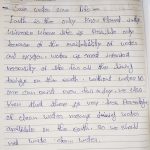 Save water save life -
Earth is the only known planet
universe where life is possible only
because of the availability of water
and oxygen. water is most needed
necessity of the for all the living
beings on the earth without water no
one can exist even for a day. we also
know that there is very less percentage
of clean water means drinking water
available on the earth. So we should
not waste clean water.